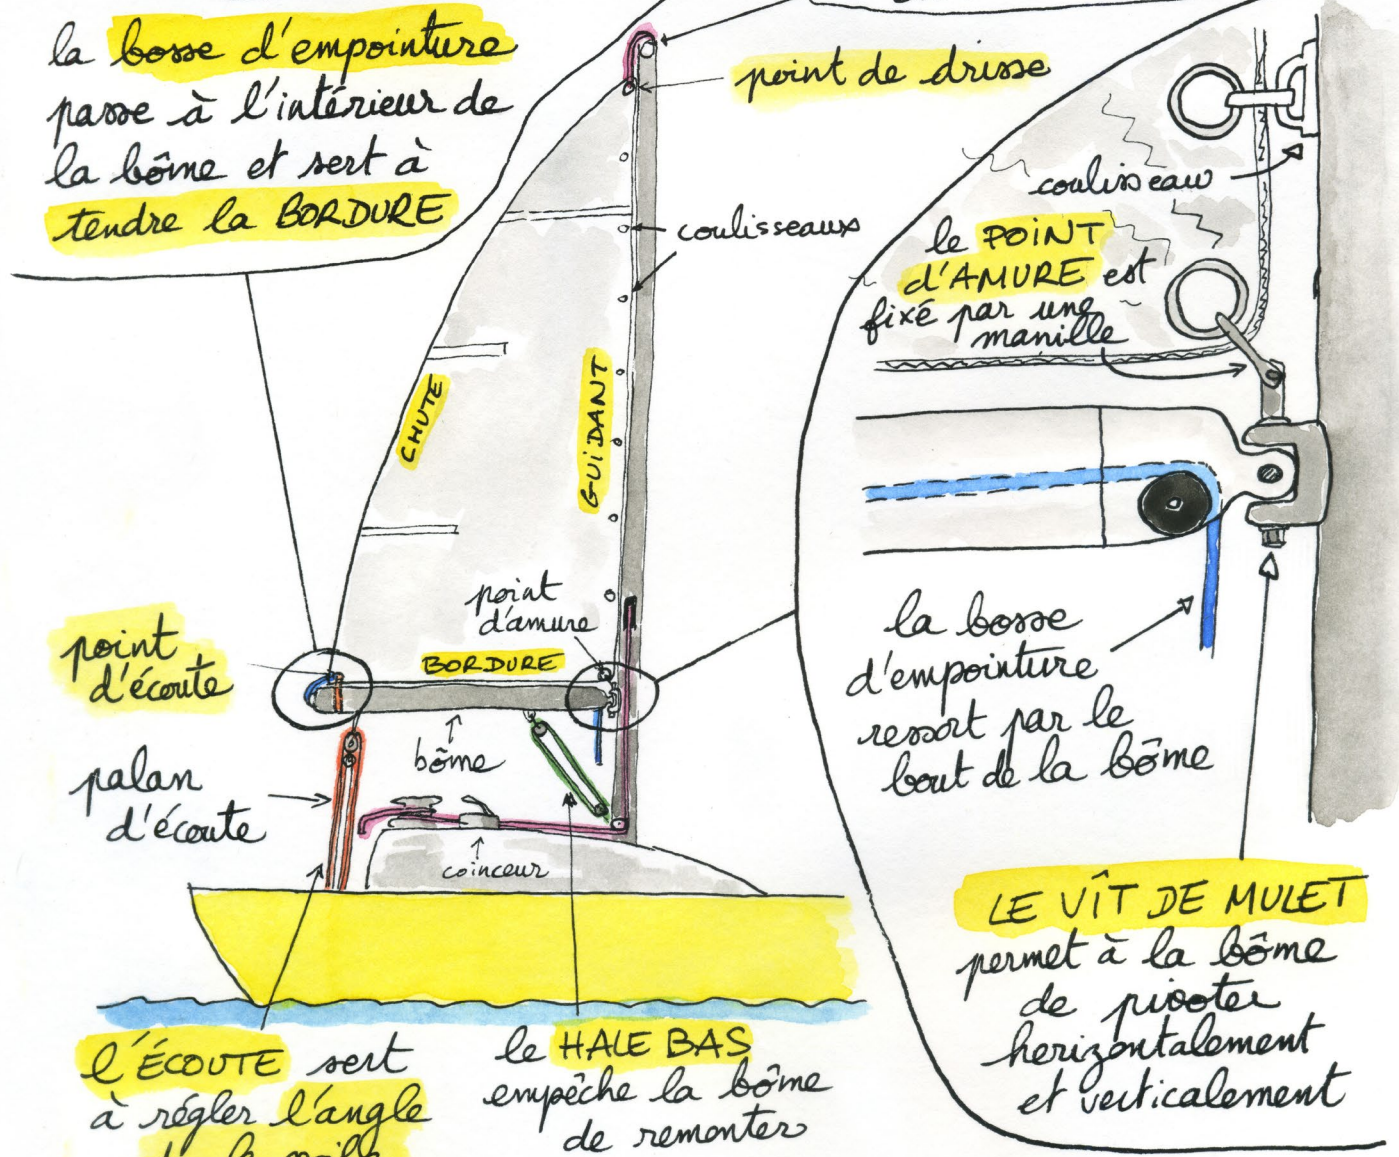 la bosse d'empointure
passe à l'intérieur de
la bôme et sert à
tendre la BORDURE
point de drisse
coulisseaux
CHUTE
GUIDANT
point
d'amure
BORDURE
point
d'écoute
bôme
palan
d'écoute
coinceur
l'ÉCOUTE sert
à régler l'angle
le HALE BAS
empêche la bôme
de remonter
coulisseau
le POINT
d'AMURE est
fixé par une
manille
la bosse
d'empointure
ressort par le
bout de la bôme
LE VÎT DE MULET
permet à la bôme
de pivoter
horizontalement
et verticalement